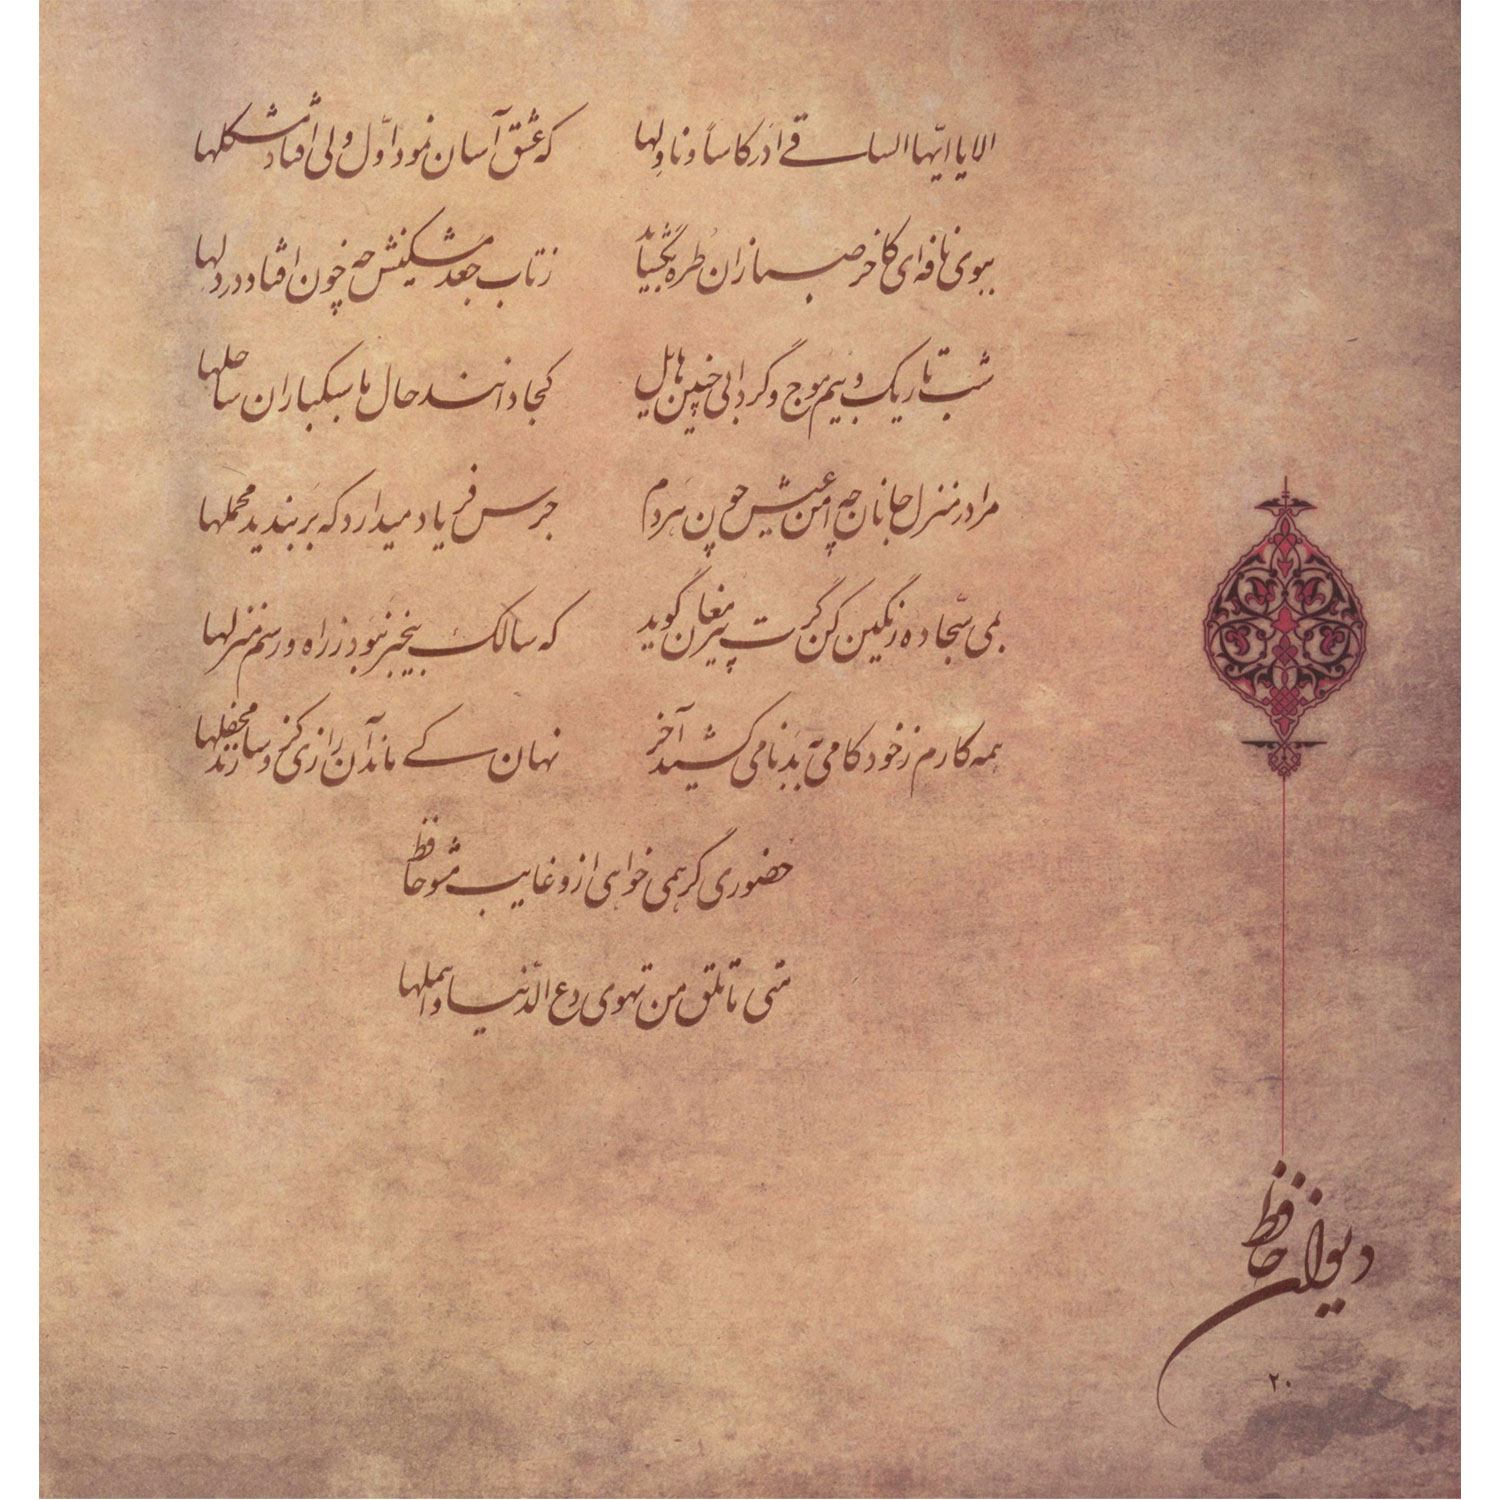 الا یا ایّها الساقی اَدِر کاساً و ناوِلها که عشق آسان نمود اوّل ولی افتاد مشکلها
ببوی نافه‌ای کاخر صبا زان طُرّه بگشاید ز تاب جعد مشکینش چه خون افتاد در دلها
شب تاریک و بیم موج و گردابی چنین هایل کجا دانند حال ما سبکباران ساحلها
مرا در منزل جانان چه امن عیش چون هر دم جرس فریاد میدارد که بر بندید محملها
بمی سجّاده رنگین کن گرت پیر مغان گوید که سالک بیخبر نبود ز راه و رسم منزلها
همه کارم ز خود کامی به بدنامی کشید آخر نهان کی ماند آن رازی کزو سازند محفلها
حضوری گر همی خواهی ازو غایب مشو حافظ
متی ما تلق من تهوی دع الدّنیا و اهملها
دیوان حافظ
۲۰